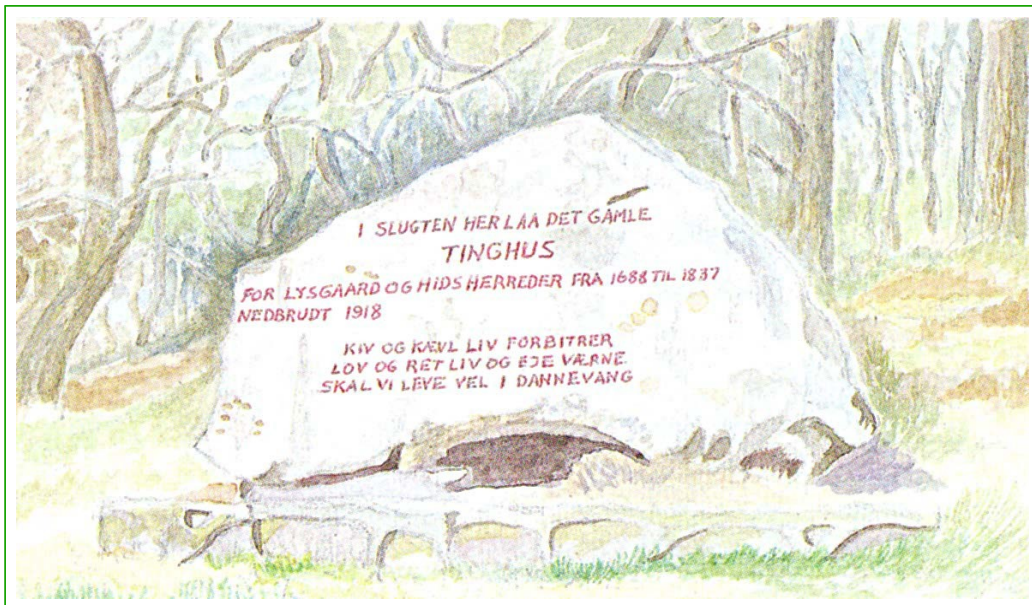 I SLUGTEN HER LAA DET GAMLE
TINGHUS
FOR LYSGAARD OG HIDS HERREDER FRA 1688 TIL 1837
NEDBRUDT 1918
KIV OG KÆVL LIV FORBITRER
LOV OG RET LIV OG EJE VÆRNE
SKAL VI LEVE VEL I DANNEVANG